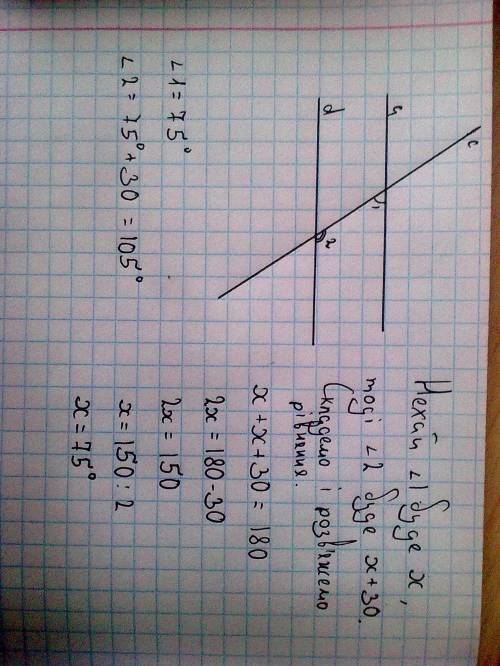 c
b
1
d
2
∠1 = 75°
∠2 = 75° + 30 = 105°
Нехай ∠1 буде x,
тоді ∠2 буде x + 30.
Складемо і розв'яжемо
рівняння.
x + x + 30 = 180
2x = 180 - 30
2x = 150
x = 150 : 2
x = 75°